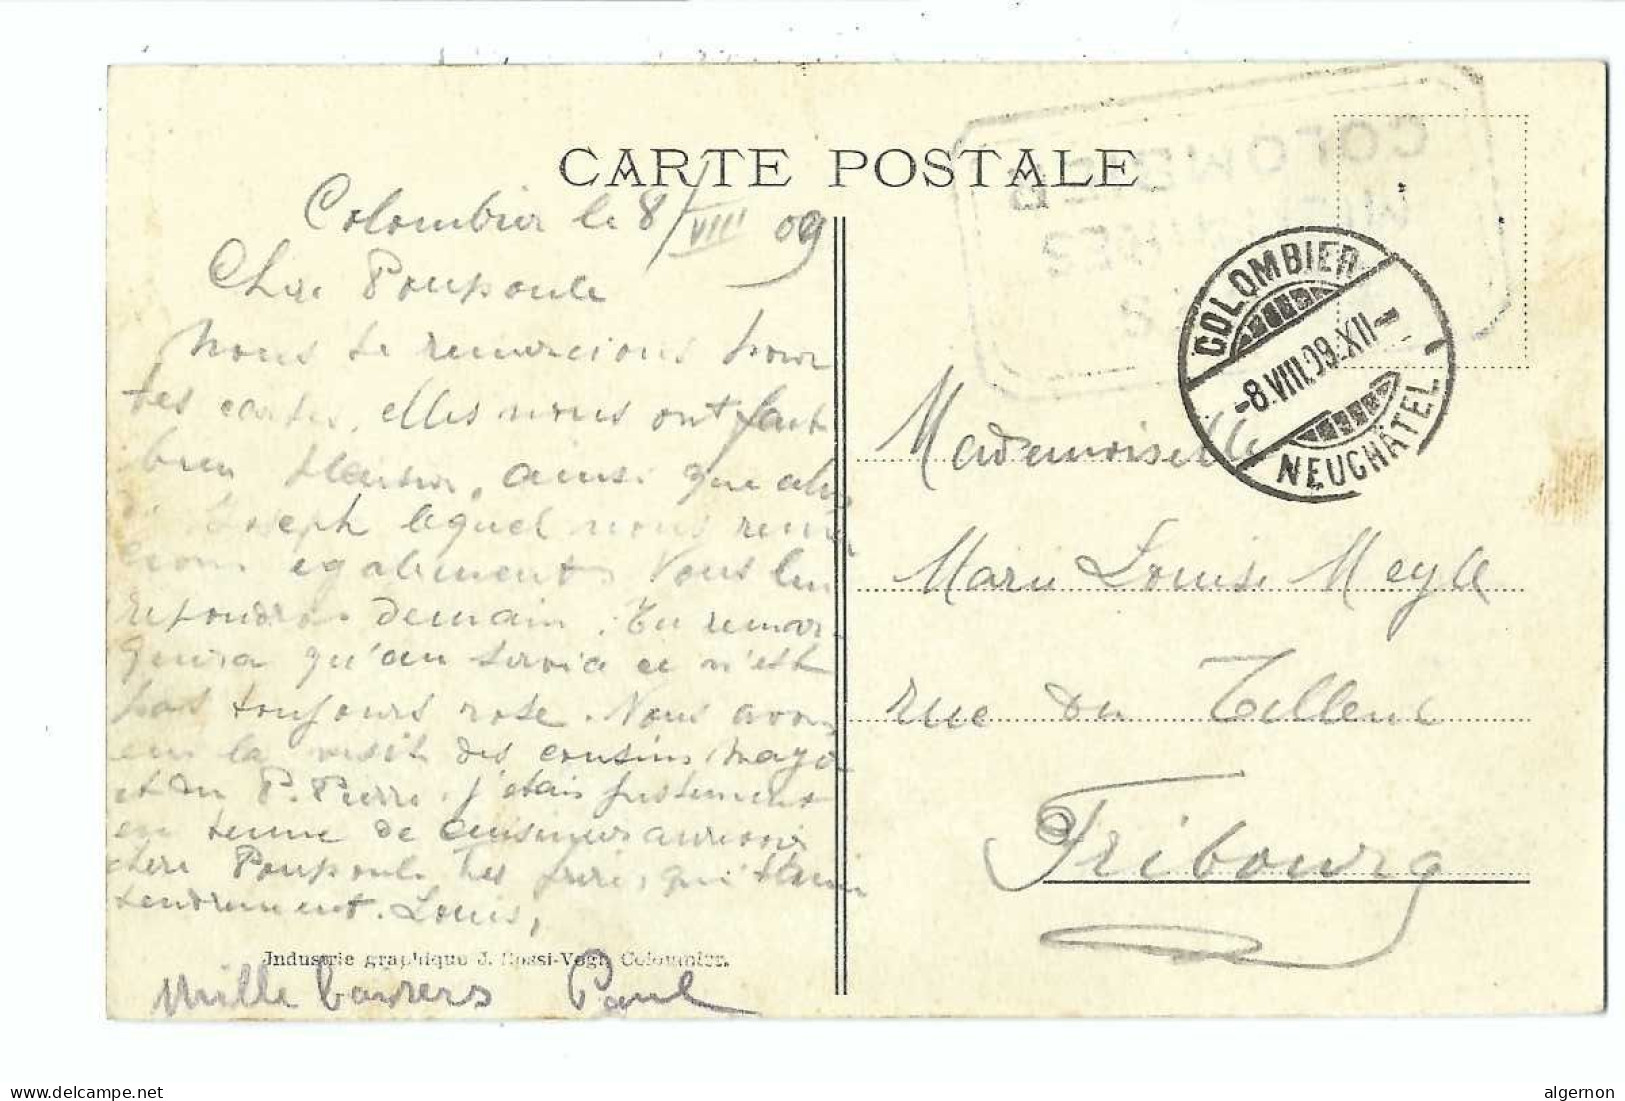 CARTE POSTALE
Colombier le 8/VIII 09
Chère Poupoule
Nous te remercions pour
tes cartes, elles nous ont fait
bien plaisir, ainsi que celles
de Joseph lequel nous remer
cions également Nous lui
répondrons demain. Tu remar-
quera qu'au service ce n'est
pas toujours rose. Nous avons
eu la visite des cousins
et du P. Pierre. j'étais justement
en tenue de cuisinier aurevoir
chère Poupoule tes frère, qui t'aime
tendrement. Louis,
Industrie graphique J. Rossi-Vogt, Colombier.
Mille baisers Paul
COLOMBIER
COLOMBIER
-8.VIII.09.XII-
NEUCHÂTEL
Mademoiselle
Marie Louise Meyll
rue du Tilleul
Fribourg
delcampe.net
algernon